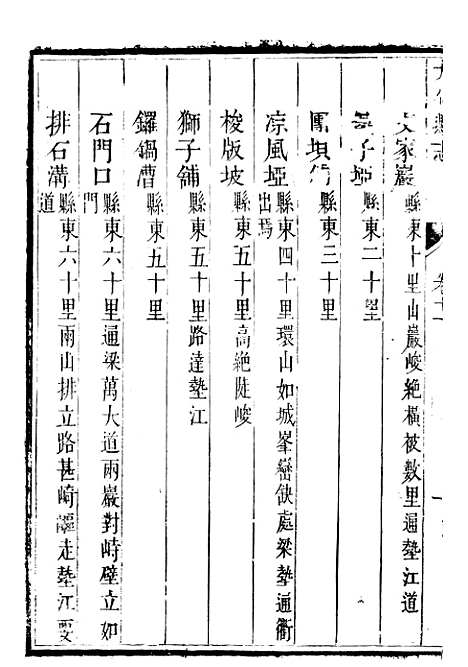 家巖縣東十里山巖峻絕橫被數里通墊江道
子埡縣東二十里
縣東三十里
凉風埡縣東四十里環山如城峯巒缺處梁墊通衢出焉
梭版坡縣東五十里高絕陡峻
獅子舖縣東五十里路達墊江
鑼鍋漕縣東五十里
石門口縣東六十里通梁萬大道兩巖對峙壁立如門
排石溝縣東六十里兩山排立路甚崎嶇走墊江要道